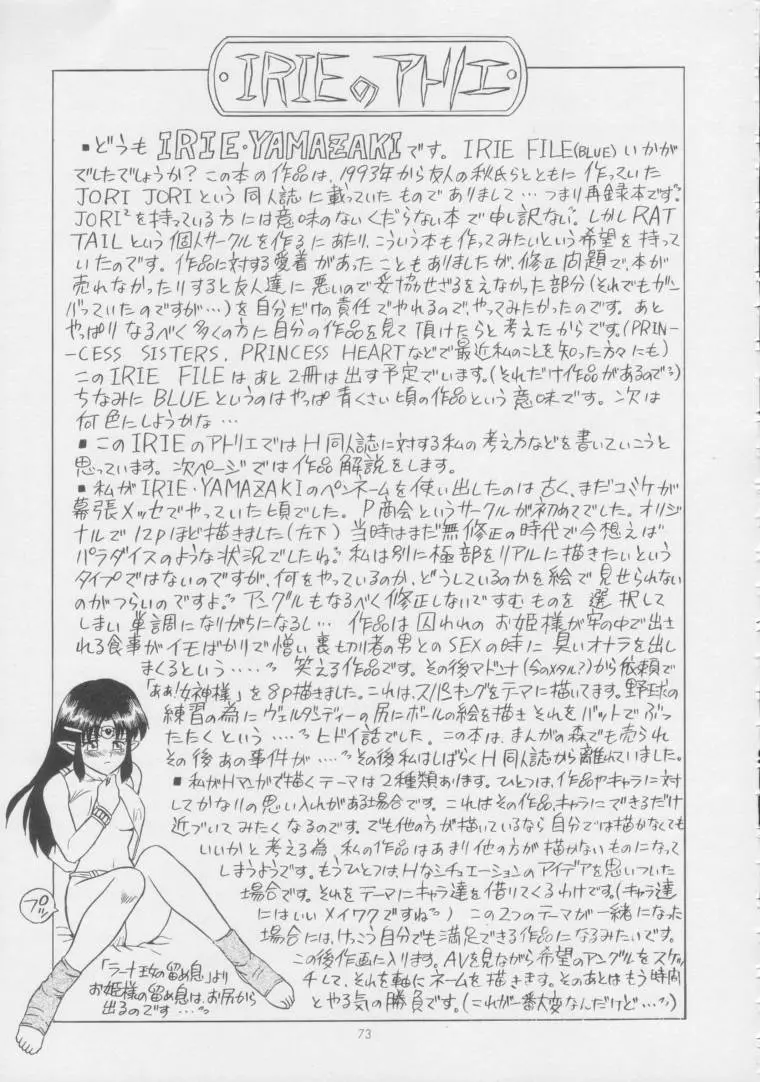 IRIEのアトリエ
▪どうも IRIE・YAMAZAKIです。 IRIE FILE(BLUE) いかが
でしたでしょうか？この本の作品は、1993年から友人の秋氏らとともに作っていた
JORI JORIという同人誌に載っていたものでありまして…つまり再録本です。
JORI²を持っている方には意味のないくだらない本で申し訳ない。しかしRAT
TAILという個人サークルを作るにあたり、こういう本も作ってみたいという希望を持って
いたのです。作品に対する愛着があったこともありましたが、修正問題で、本が
売れなかったりすると友人達に悪いので妥協せざるをえなかった部分(それでもガン
バっていたのですが…)を自分だけの責任でやれるので、やってみたかったのです。あと
やっぱりなるべく多くの方に自分の作品を見て頂けたらと考えたからです。(PRIN-
-CESS SISTERS. PRINCESS HEARTなどで最近私のことを知った方々にも)
このIRIE FILEはあと2冊は出す予定でいます。(それだけ作品があるので)
ちなみにBLUEというのはやっぱ青くさい頃の作品という意味です。次は
何色にしようかな…
▪このIRIEのアトリエではH同人誌に対する私の考え方などを書いていこうと
思っています。次ページでは作品解説をします。
▪私がIRIE・YAMAZAKIのペンネームを使い出したのは古く、まだコミケが
幕張メッセでやっていた頃でした。P商会というサークルが初めてでした。オリジ
ナルで12pほど描きました(左下)当時はまだ無修正の時代で今想えば
パラダイスのような状況でしたね。私は別に極部をリアルに描きたいという
タイプではないのですが、何をやっているのか、どうしているのかを絵で見せられない
のがつらいのですよ。アングルもなるべく修正しないですむものを選択して
しまい単調になりがちになるし… 作品は囚われのお姫様が牢の中で出さ
れる食事がイモばかりで憎い裏切り者の男とのSEXの時に臭いオナラを出し
まくるという‥‥ 笑える作品です。その後マドンナ(今のメタル?)から依頼で
「ああ!女神様」を8p描きました。これは、スパンキングをテーマに描いてます。野球の
練習の為にヴェルダンディーの尻にボールの絵を描きそれをバットでぶっ
たたくという‥‥ヒドイ話でした。この本は、まんがの森でも売られ
その後あの事件が‥‥その後私はしばらくH同人誌から離れていました。
▪私がHマンガで描くテーマは2種類あります。ひとつは、作品やキャラに対
してかなりの思い入れがある場合です。これはその作品、キャラにできるだけ
近づいてみたくなるのです。でも他の方が描いているなら自分では描かなくても
いいかと考える為、私の作品はあまり他の方が描かないものになって
しまうようです。もうひとつは、Hなシチュエーションのアイデアを思いついた
場合です。それをテーマにキャラ達を借りてくるわけです。(キャラ達
にはいいメイワクですね)この2つのテーマが一緒になった
場合には、けっこう自分でも満足できる作品になるみたいです。
この後作画に入ります。AVを見ながら希望のアングルをスケッ
チして、それを軸にネームを描きます。そのあとはもう時間
とやる気の勝負です。(これが一番大変なんだけど…)
プッ
「ラーナ王女の留め息」より
お姫様の留め息は、お尻から
出るのです…
73